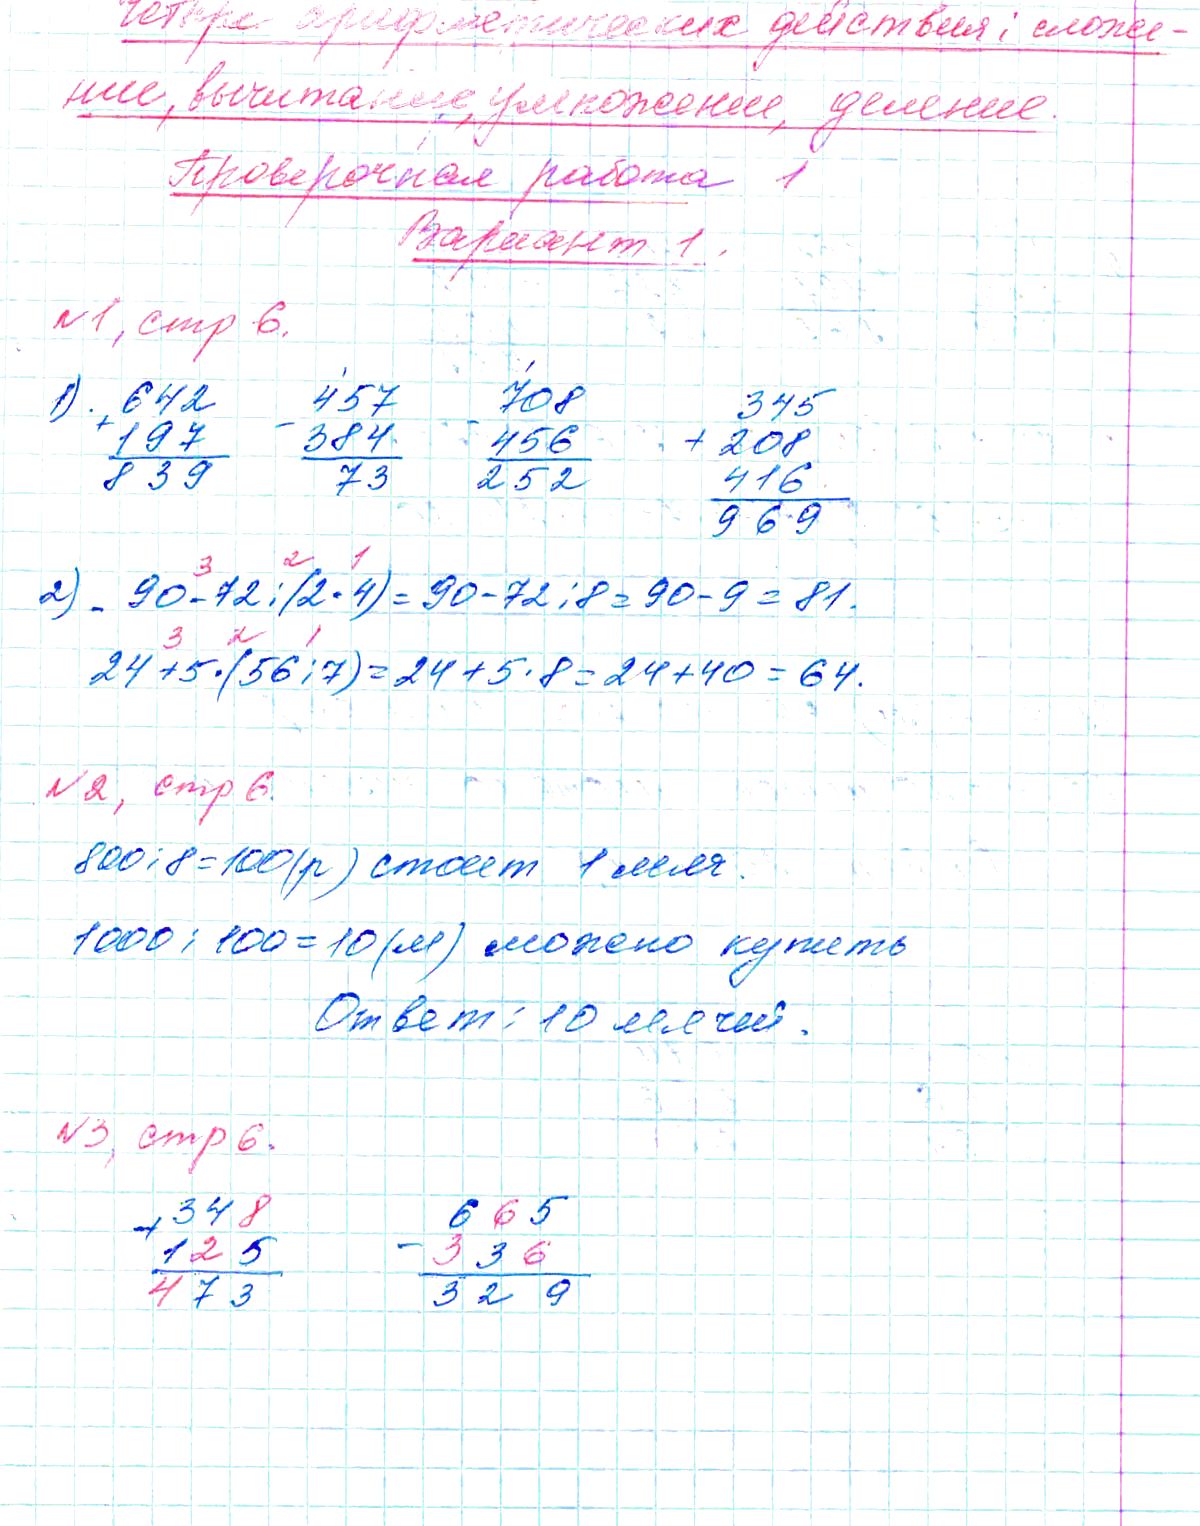 Четыре арифметических действия: сложе-
ние, вычитание, умножение, деление.
Проверочная работа 1
Вариант 1.
№1, стр 6.
1). 642 457 708 345
+ 197 - 384 - 456 + 208
839 73 252 416
969
3 2 1
2) - 90-72:(2·4)=90-72:8=90-9=81.
3 2 1
24+5·(56:7)=24+5·8=24+40=64.
№2, стр 6.
800:8=100(р) стоит 1 мяч.
1000:100=10(м) можно купить
Ответ: 10 мячей.
№3, стр 6.
+ 348 665
125 - 336
473 329